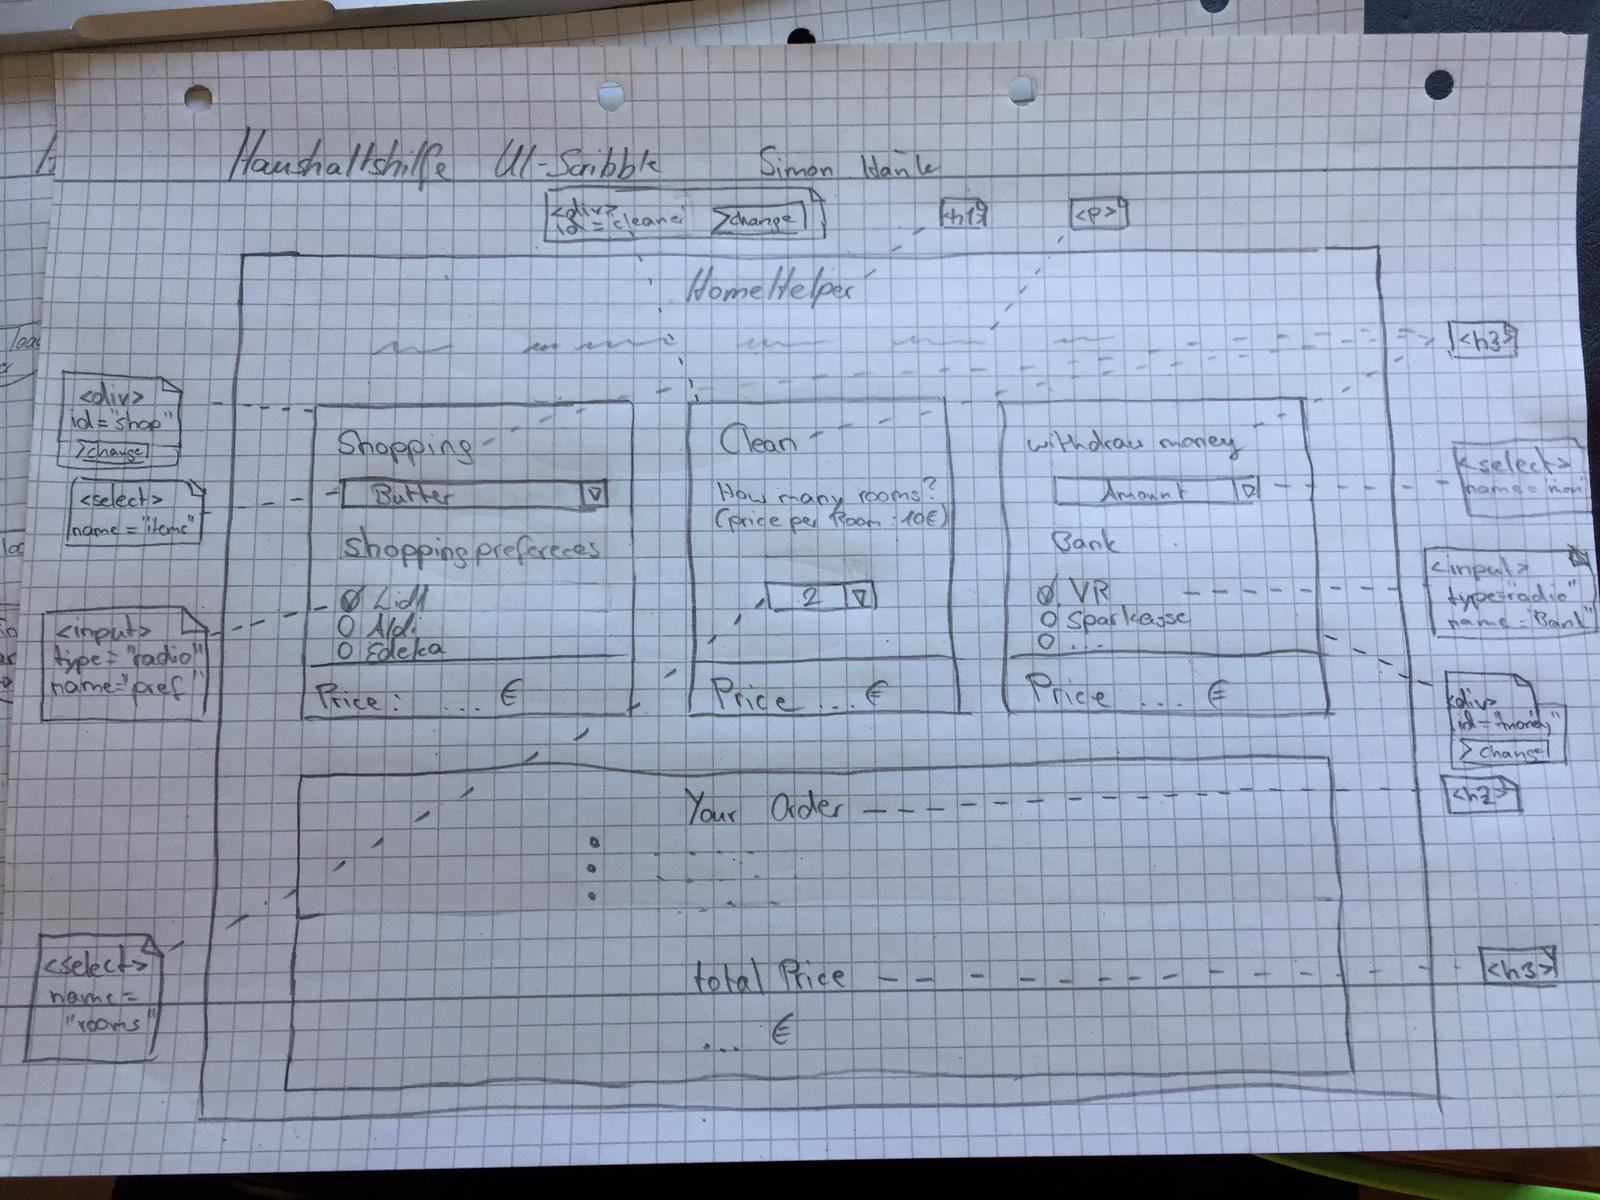 Haushaltshilfe UI-Scribble Simon
<div>
id="cleane" >change
<h1> <p>
HomeHelper
<h3>
<div>
id="shop"
>change
<select>
name="items"
<input>
type="radio"
name="pref"
<select>
name=
"rooms"
Shopping
Butter
Shopping prefereces
Lidl
Aldi
Edeka
Price: ... €
Clean
How many rooms?
(price per Room: 10€)
2
Price ... €
withdraw money
Amount
Bank
VR
Sparkasse
...
Price ... €
<select>
name="mon"
<input>
type="radio"
name="Bank"
<div>
id="money"
>change
<h2>
Your Order
total Price
... €
<h3>